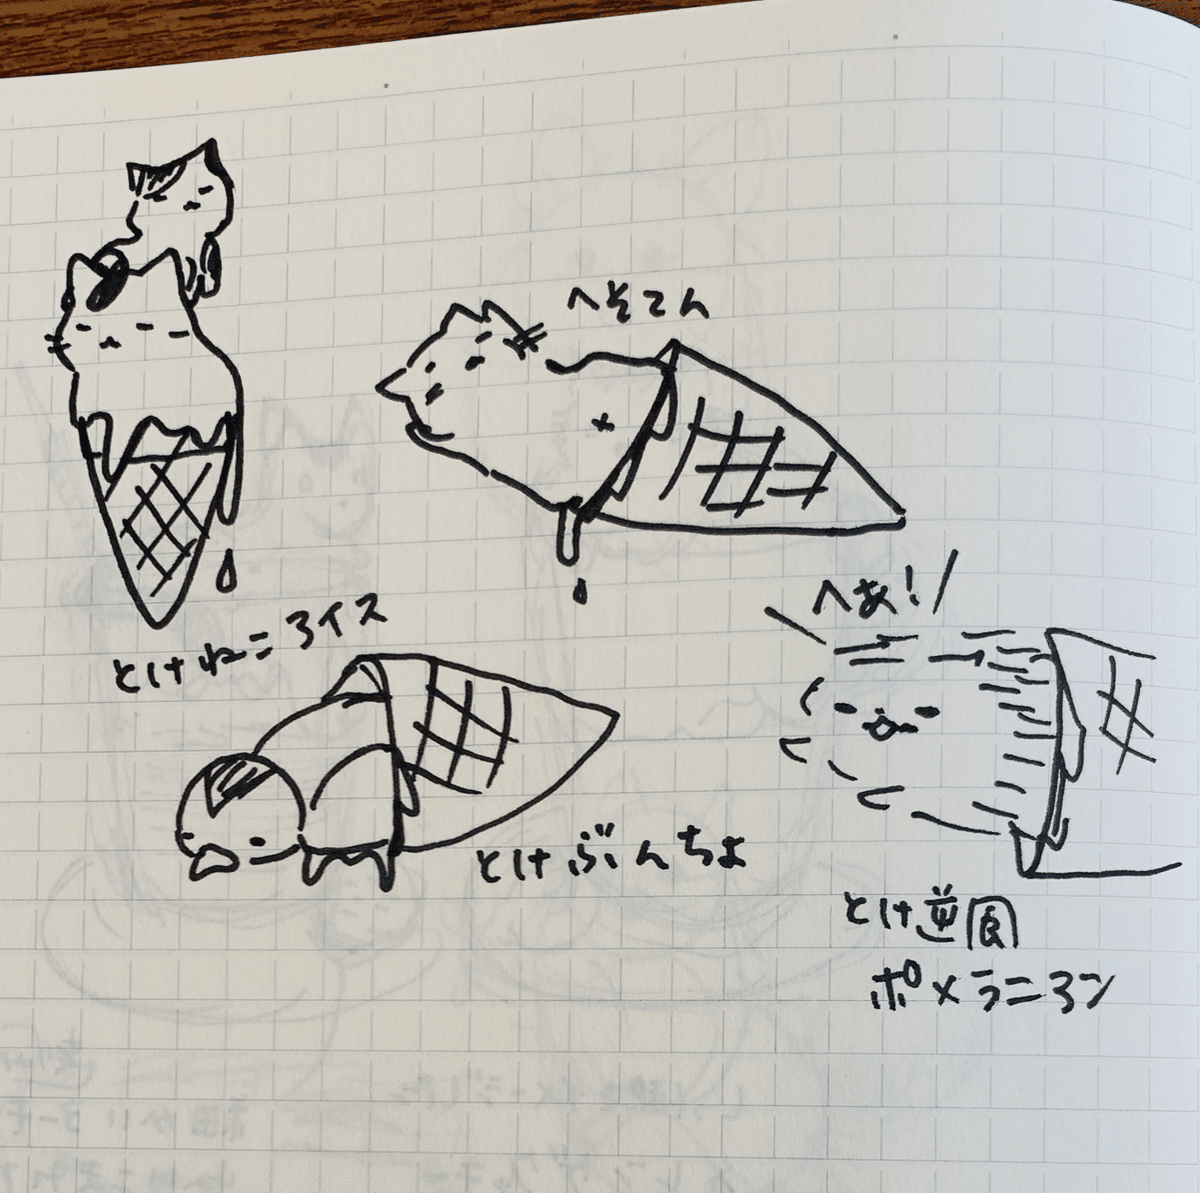 へそてん
へあ!
とけねこアイス
とけぶんちょ
とけ逆
ポメラニアン